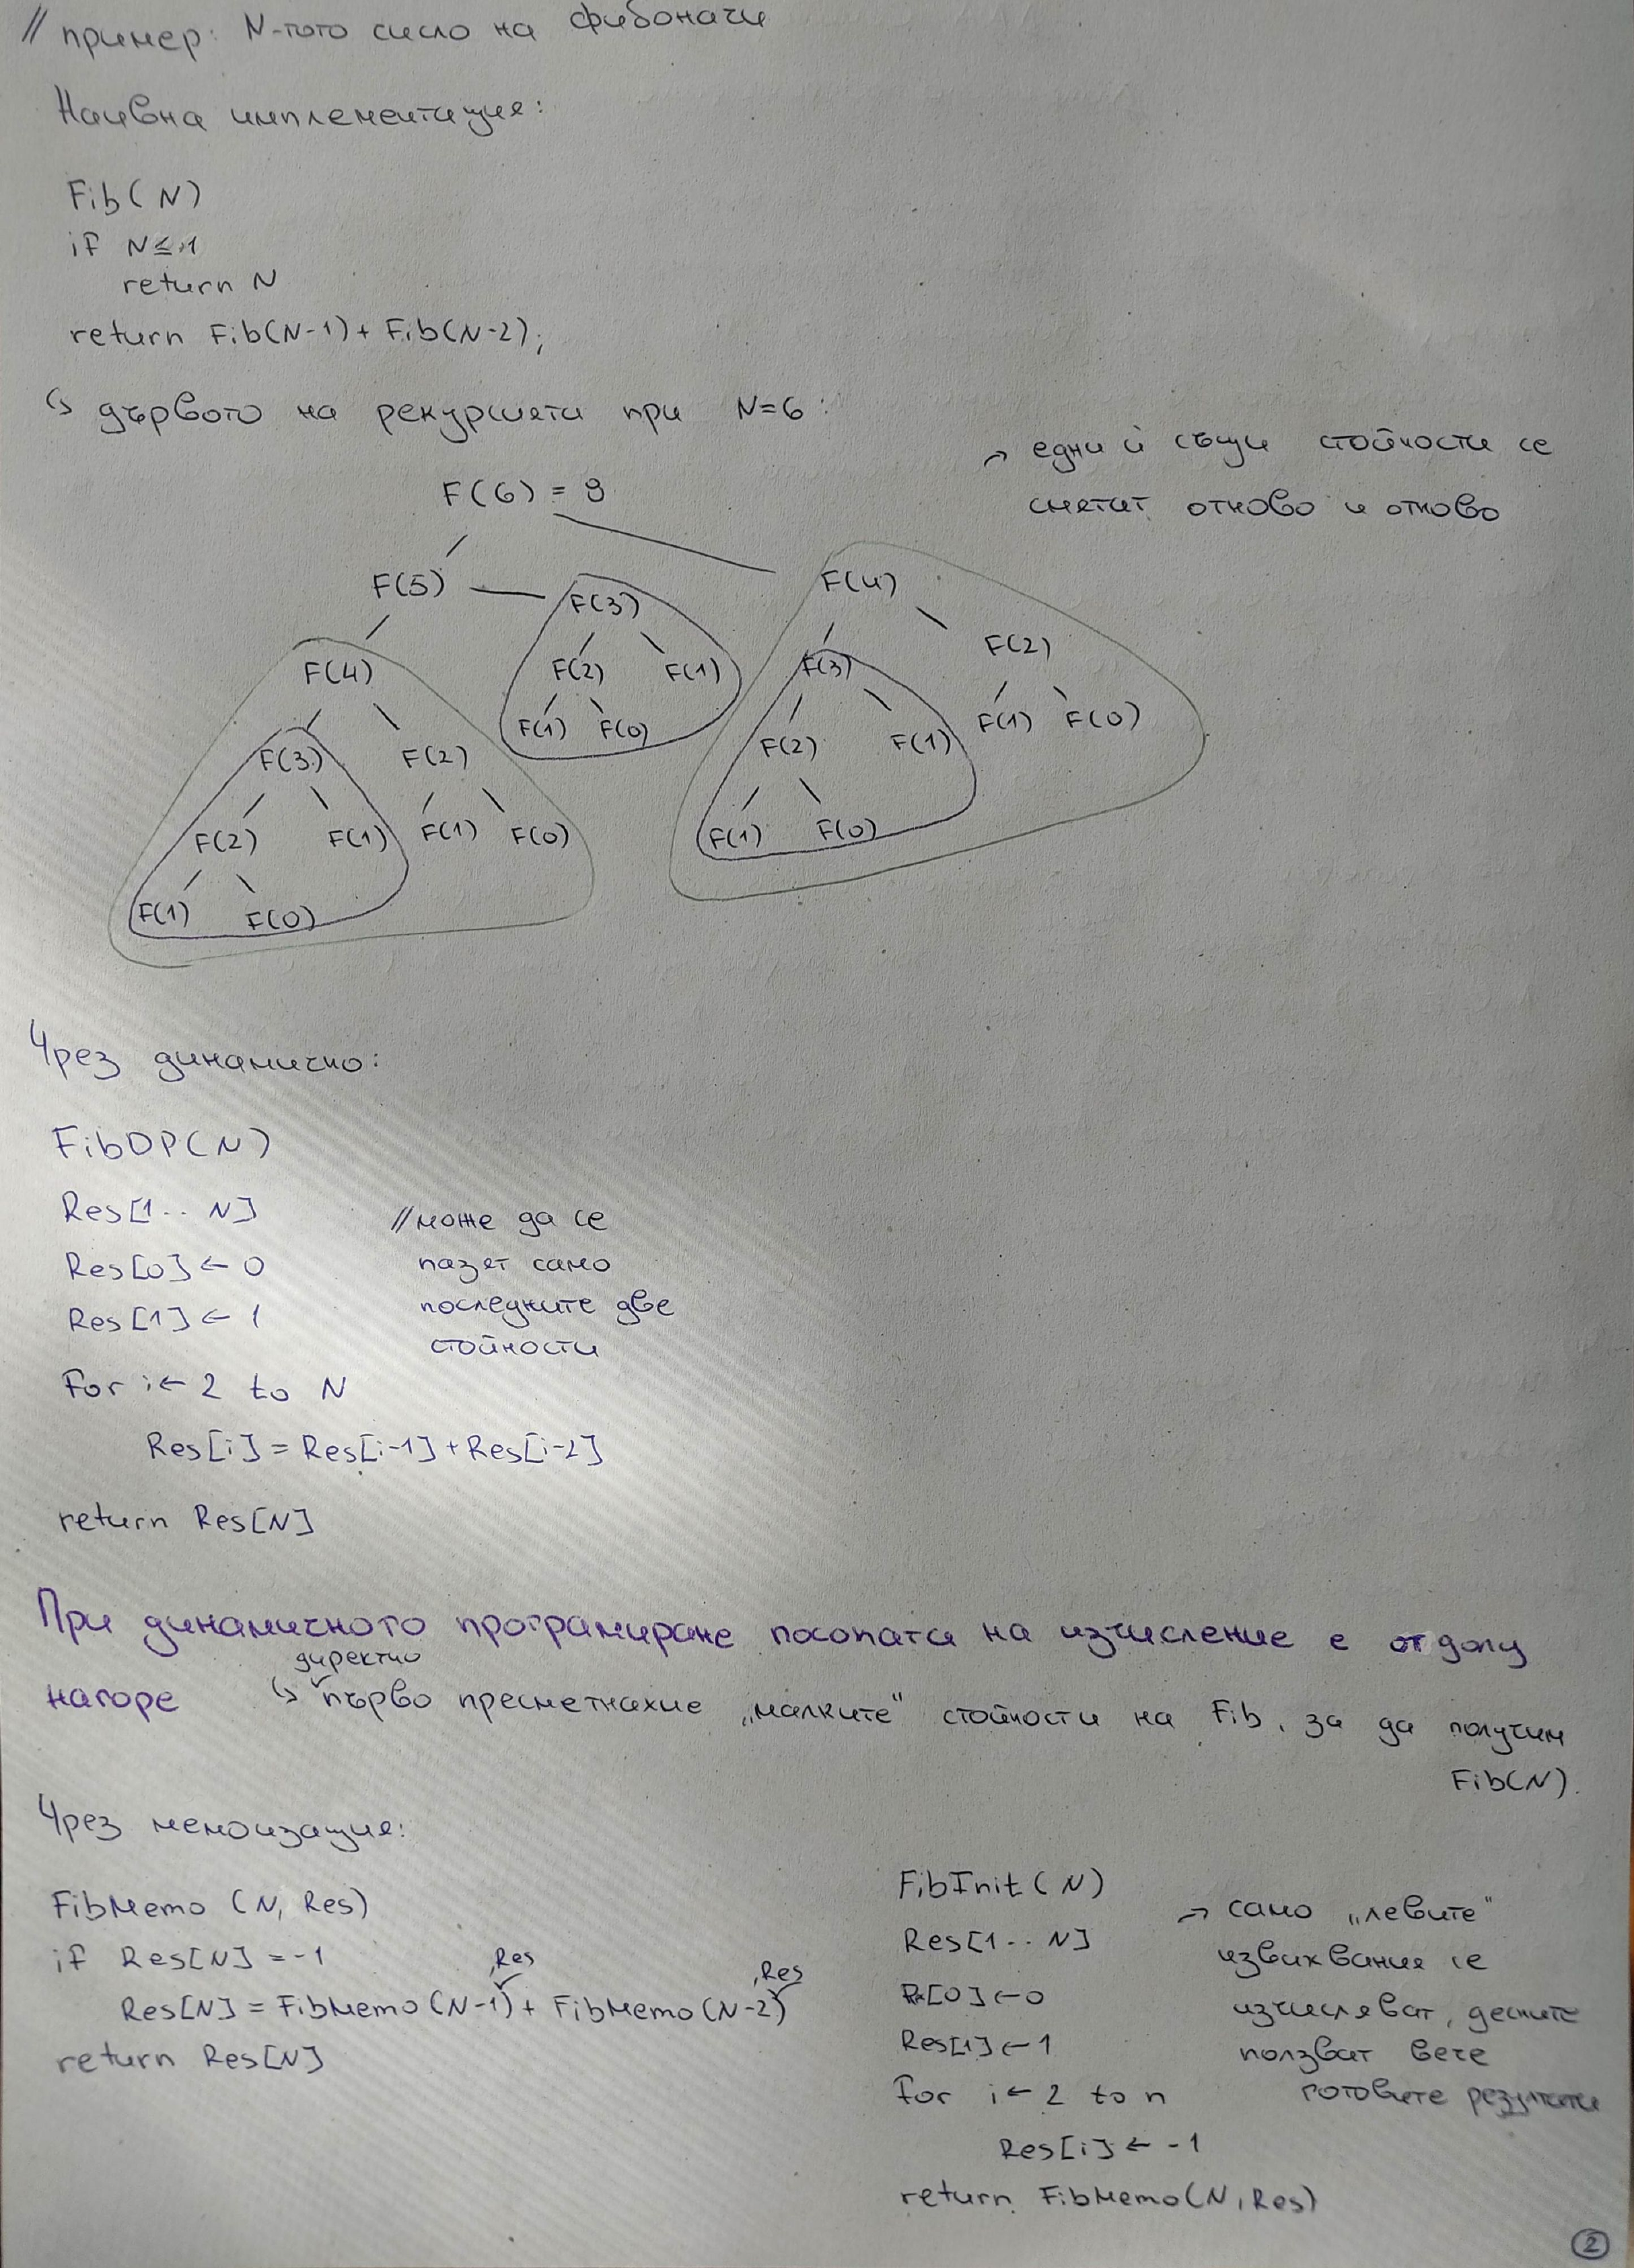 // пример: N-тото число на фибоначи
Наивна имплементация:
Fib(N)
if N≤1
return N
return Fib(N-1)+Fib(N-2);
↳ дървото на рекурсията при N=6:
→ едни и същи стойности се
смятат отново и отново
F(6) = 8
F(5) F(3) F(4)
F(4) F(2) F(1) F(3) F(2)
F(1) F(0) F(2) F(1) F(1) F(0)
F(3) F(2) F(1) F(0)
F(2) F(1) F(1) F(0)
F(1) F(0)
Чрез динамично:
FibDP(N)
Res[1.. N] //може да се
Res[0] ← 0 пазят само
Res[1] ← 1 последните две
стойности
for i← 2 to N
Res[i] = Res[i-1] + Res[i-2]
return Res[N]
При динамичното програмиране посоката на изчисление е отдолу
нагоре ↳ директно първо пресметнахме „малките“ стойности на Fib, за да получим
Fib(N).
Чрез мемоизация:
FibMemo (N, Res)
if Res[N] = -1
Res[N] = FibMemo(N-1,Res) + FibMemo(N-2,Res)
return Res[N]
FibInit(N)
Res[1.. N]
R[0]←0
Res[1]←1
for i← 2 to n
Res[i] ← -1
return FibMemo(N, Res)
→ само „левите“
извиквания се
изчисляват, десните
ползват вече
готовите резултати
2